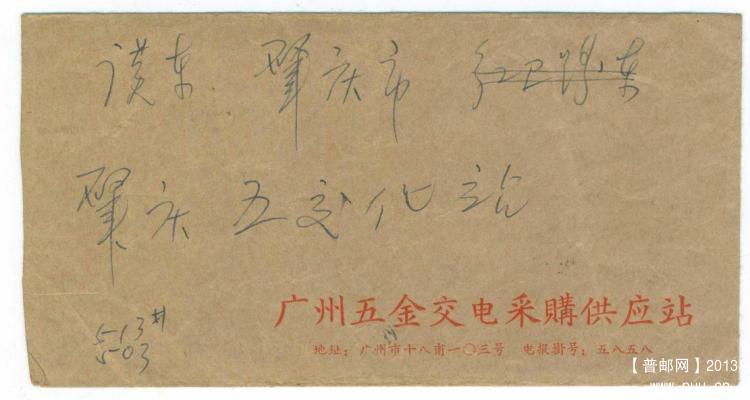 肇庆市 红卫路东
肇庆五交化站
513#
503
广州五金交电采購供应站
地址：广州市十八甫一〇三号 电报掛号：五八五八
【普邮网】2013